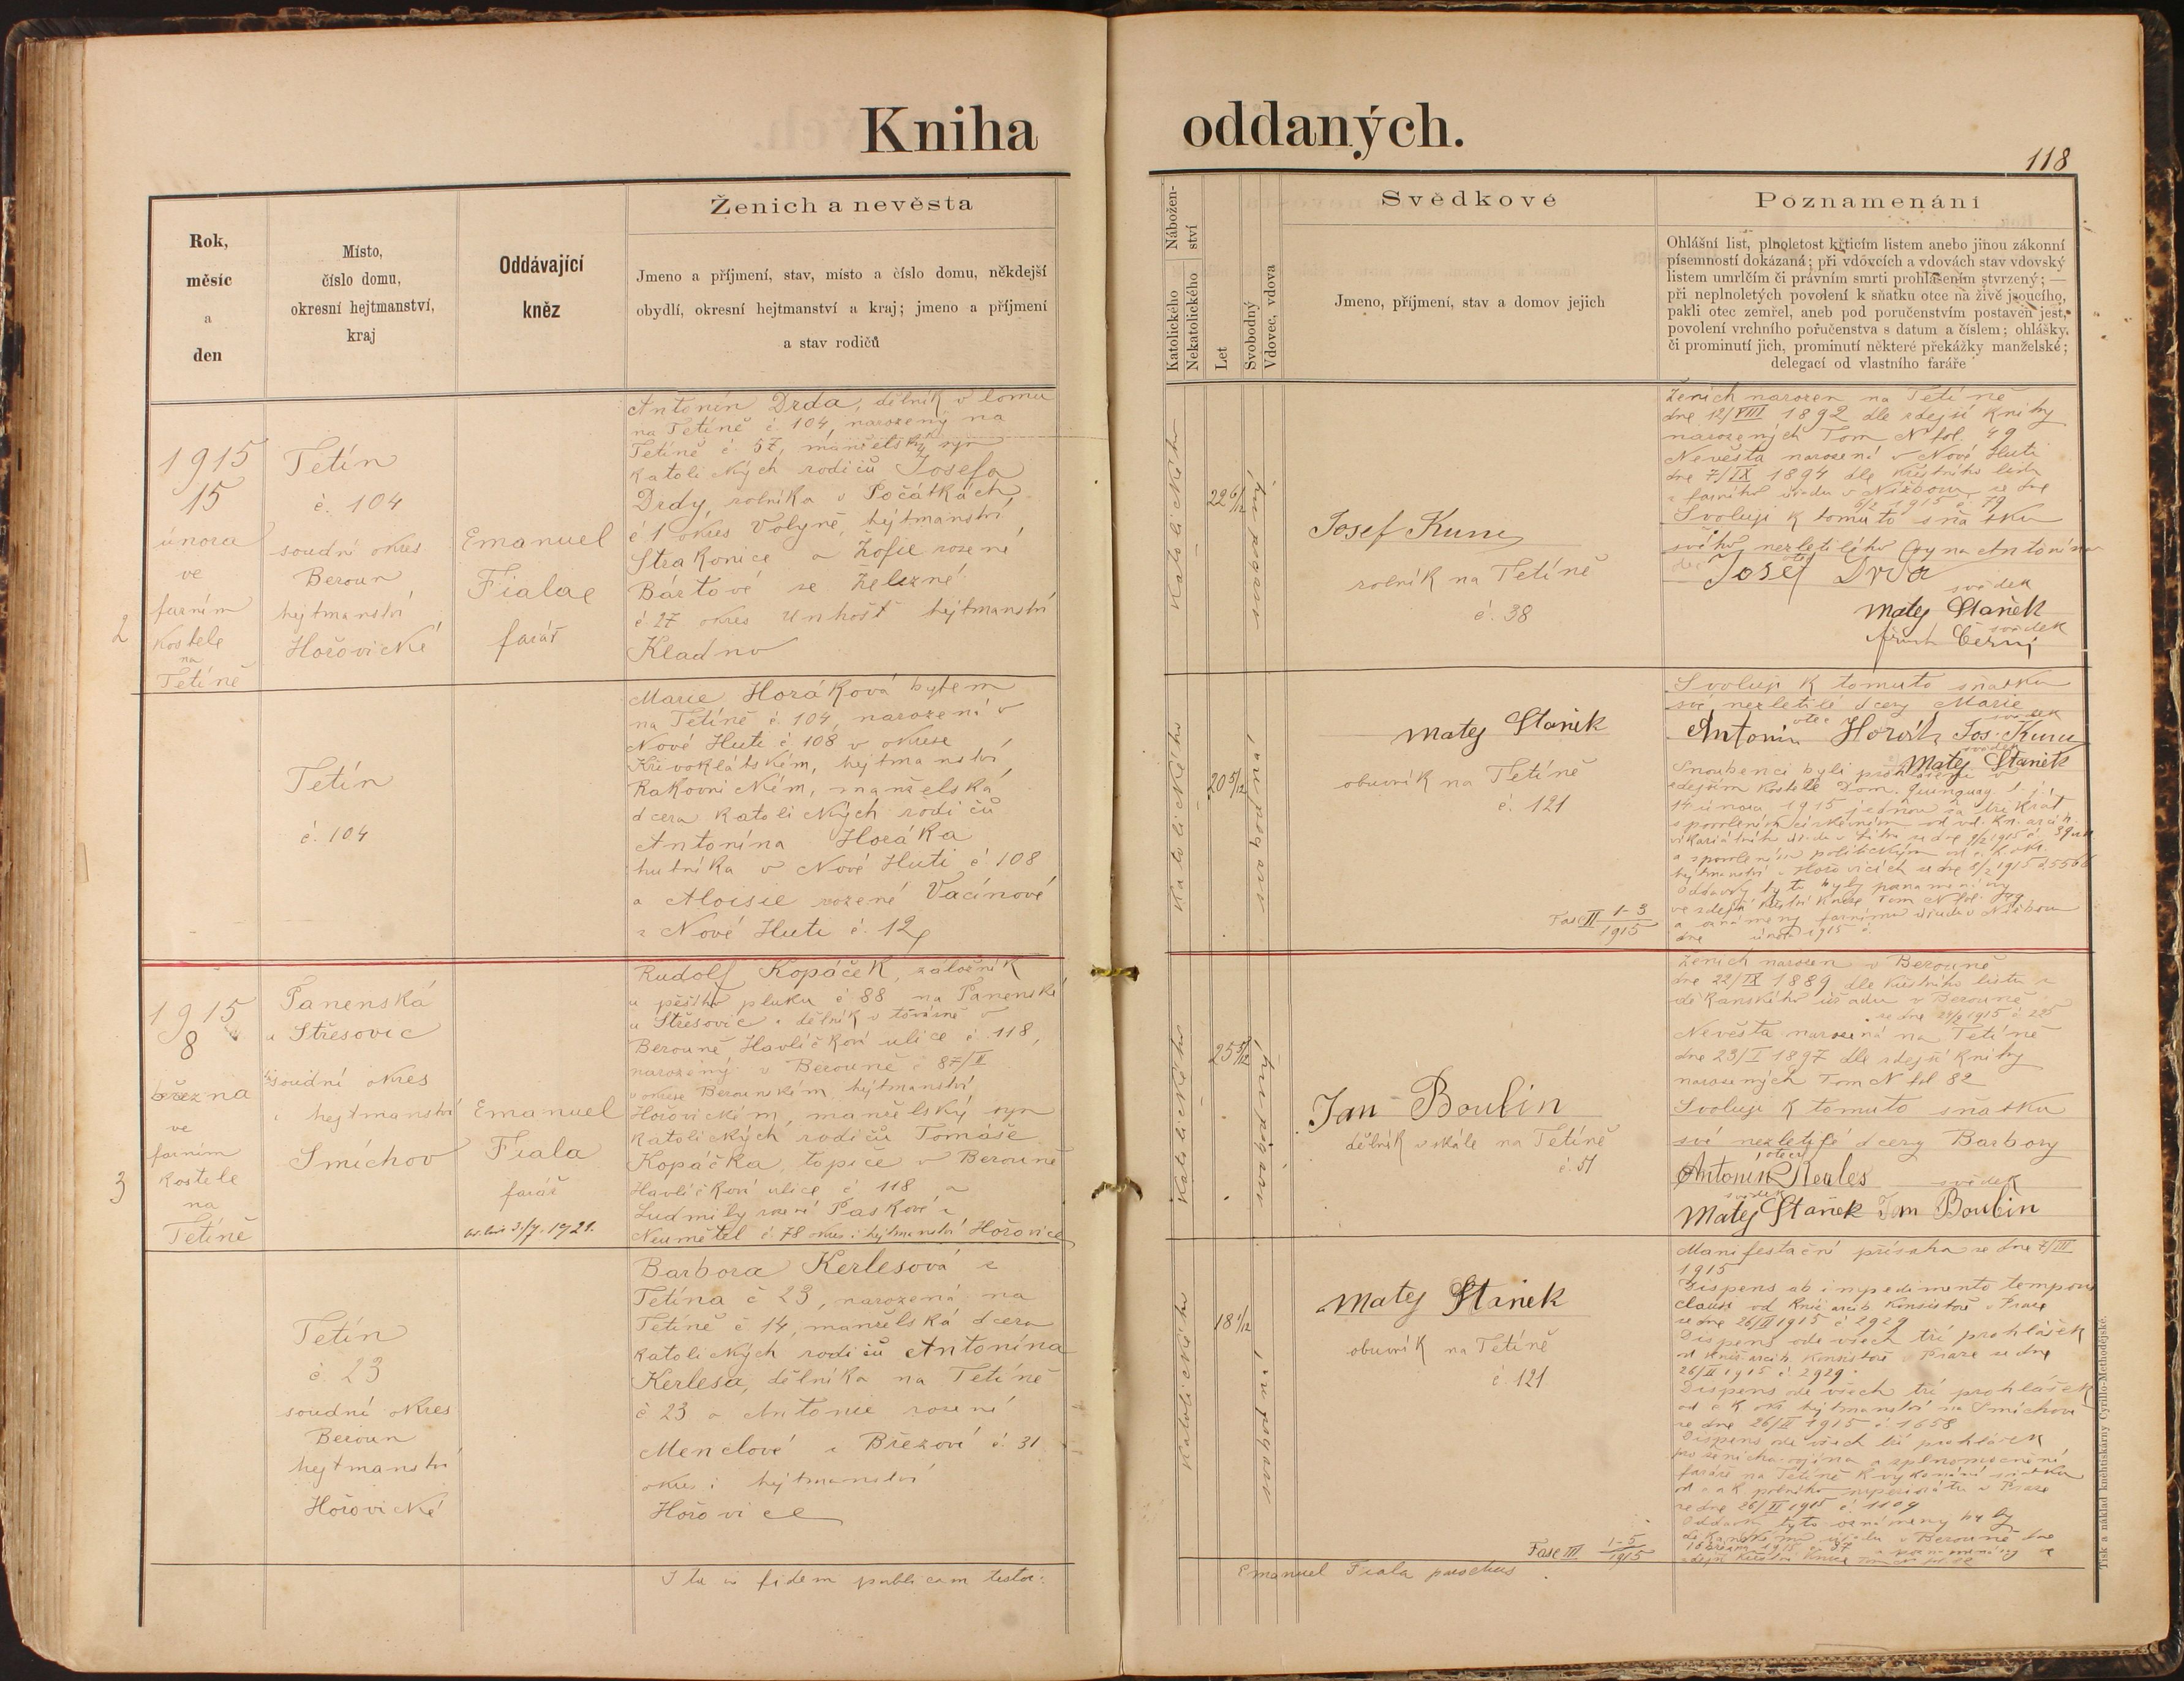 Kniha oddaných.
118
Rok,
měsíc
a
den
Místo,
číslo domu,
okresní hejtmanství,
kraj
Oddávající
kněz
Ženich a nevěsta
Jmeno a příjmení, stav, místo a číslo domu, někdejší
obydlí, okresní hejtmanství a kraj; jmeno a příjmení
a stav rodičů
Katolického
Nekatolického
Nábožen-
ství
Let
Svobodný
Vdovec, vdova
Svědkové
Jmeno, příjmení, stav a domov jejich
Poznamenání
Ohlášní list, plnoletost křticím listem anebo jinou zákonní
písemností dokázaná; při vdovcích a vdovách stav vdovský
listem umrlčím či právním smrti prohlášením stvrzený; —
při neplnoletých povolení k sňatku otce na živě jsoucího,
pakli otec zemřel, aneb pod poručenstvím postaven jest,
povolení vrchního poručenstva s datum a číslem; ohlášky.
či prominutí jich, prominutí některé překážky manželské;
delegací od vlastního faráře
2
1915
15
února
ve
farním
kostele
na
Tetíně
Tetín
č. 104
soudní okres
Beroun
hejtmanství
Hořovické
Emanuel
Fiala
farář
Antonín Drda, dělník v lomu
na Tetíně č. 104, narozený na
Tetíně č 57, manželský syn
katolických rodičů Josefa
Drdy, rolníka v Počátkách
č 1 okres Volyně, hejtmanství
Strakonice a Žofie rozené
Bártové ze Železné
č. 27 okres Unhošť hejtmanství
Kladno
katolického
22 6/12
svobodný
Josef Kunc
rolník na Tetíně
č. 38
Ženich narozen na Tetíně
dne 12/VIII 1892 dle zdejší knihy
narozených Tom N fol. 49
Nevěsta narozená v Nové Huti
dne 7/IX 1894 dle křestního listu
z farního úřadu v Nižboru ze dne
8/2 1915 č 79
Svoluji k tomuto sňatku
svého nezletilého syna Antonína
otec
Josef Drda
svědek
Matej Staněk
svědek
Černý
Tetín
č. 104
Marie Horáková bytem
na Tetíně č. 104, narozená v
Nové Huti č 108 v okrese
Křivoklátském, hejtmanství
Rakovnickém, manželská
dcera katolických rodičů
Antonína Horáka
hutníka v Nové Huti č 108
a Aloisie rozené Vacínové
z Nové Huti č. 12
katolického
20 5/12
svobodná
Matej Staněk
obuvník na Tetíně
č. 121
Fasc II 1-3/1915
Svoluji k tomuto sňatku
své nezletilé dcery Marie
otec svědek
Antonín Horák Jos. Kunc
svědek
Matej Staněk
Snoubenci byli prohlášeni v
zdejším kostele Dom. Quinquag. t. j.
14 února 1915 jednou za třikrát
s povolením církevním od vel. kn. arcib.
a s povolením politickým od c. k. okr.
hejtmanství v Hořovicích ze dne 8/2 1915 č 5566
Oddavky tyto byly poznamenány
ve zdejší křestní knize Tom N fol. 49
a oznámeny farnímu úřadu v Nižboru
dne února 1915 č.
3
1915
8
března
ve
farním
kostele
na
Tetíně
Panenská
u Střešovic
soudní okres
i hejtmanství
Smíchov
Emanuel
Fiala
farář
3./7. 1921.
Rudolf Kopáček, záložník
u pěšího pluku č 88 na Panenské
u Střešovic, dělník v továrně v
Berouně Havlíčkově ulice č. 118,
narozený v Berouně č 87/II
v okrese Berounském, hejtmanství
Hořovickém, manželský syn
katolických rodičů Tomáše
Kopáčka, topiče v Berouně
Havlíčkově ulice č 118 a
Ludmily rozené Paskové z
Neumětel č. 78 okres i hejtmanství Hořovice
katolického
25 5/12
svobodný
Jan Boulin
dělník v skále na Tetíně
č. 51
Ženich narozen v Berouně
dne 22/IX 1889 dle křestního listu z
děkanského úřadu v Berouně
ze dne 24/2 1915 č 225
Nevěsta narozená na Tetíně
dne 23/I 1897 dle zdejší knihy
narozených Tom N fol 82
Svoluji k tomuto sňatku
své nezletilé dcery Barbory
otec
Antonín Kerles svědek
svědek
Matej Staněk Jan Boulin
Tetín
č. 23
soudní okres
Beroun
hejtmanství
Hořovické
Barbora Kerlesová z
Tetína č 23, narozená na
Tetíně č 14, manželská dcera
katolických rodičů Antonína
Kerlesa, dělníka na Tetíně
č 23 a Antonie rozené
Menclové z Březové č. 31
okres i hejtmanství
Hořovice
katolického
18 1/12
svobodná
Matej Staněk
obuvník na Tetíně
č. 121
Fasc III 1-5/1915
Manifestační přísaha ze dne 7/III
1915
Dispens ab impedimento temporis
clausi od kníž. arcib. konsistoře v Praze
ze dne 26/II 1915 č 2929
Dispens ode všech tří prohlášek
od kníž. arcib. konsistoře v Praze ze dne
26/II 1915 č 2929
Dispens ode všech tří prohlášek
od c k okr hejtmanství na Smíchově
ze dne 26/II 1915 č 1658
Dispens ode všech tří prohlášek
pro ženicha vojína a zplnomocnění
faráře na Tetíně k vykonání sňatku
od c a k polního superiorátu v Praze
ze dne 26/II 1915 č 1109
Oddavky tyto oznámeny byly
děkanskému úřadu v Berouně dne
Ita in fidem publicam testor:
Emanuel Fiala parochus
Tisk a náklad knihtiskárny Cyrillo-Methodějské.